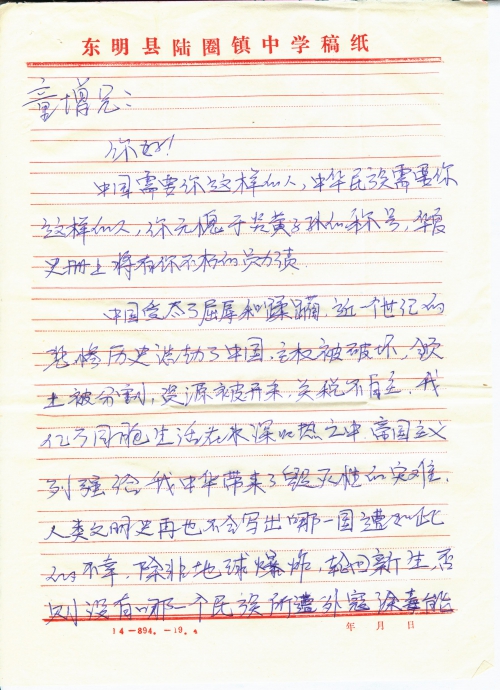 东明县陆圈镇中学稿纸
童增兄:
你好!
中国需要你这样的人,中华民族需要你
这样的人,你无愧于炎黄子孙的称号,华夏
史册上将有你不朽的功绩.
中国受尽了屈辱和蹂躏,近一个世纪的
悲惨历史 了中国,主权被破坏,领
土被分割,资源被开采,关税不自主,我
亿万同胞生活在水深火热之中,帝国主义
列强给我中华带来了毁灭性的灾难.
人类文明史再也不会写出哪一国遭如此
的不幸,除非地球爆炸,轮回新生,否
则没有哪一个民族所遭外寇涂毒
14-894.-19.
年 月 日